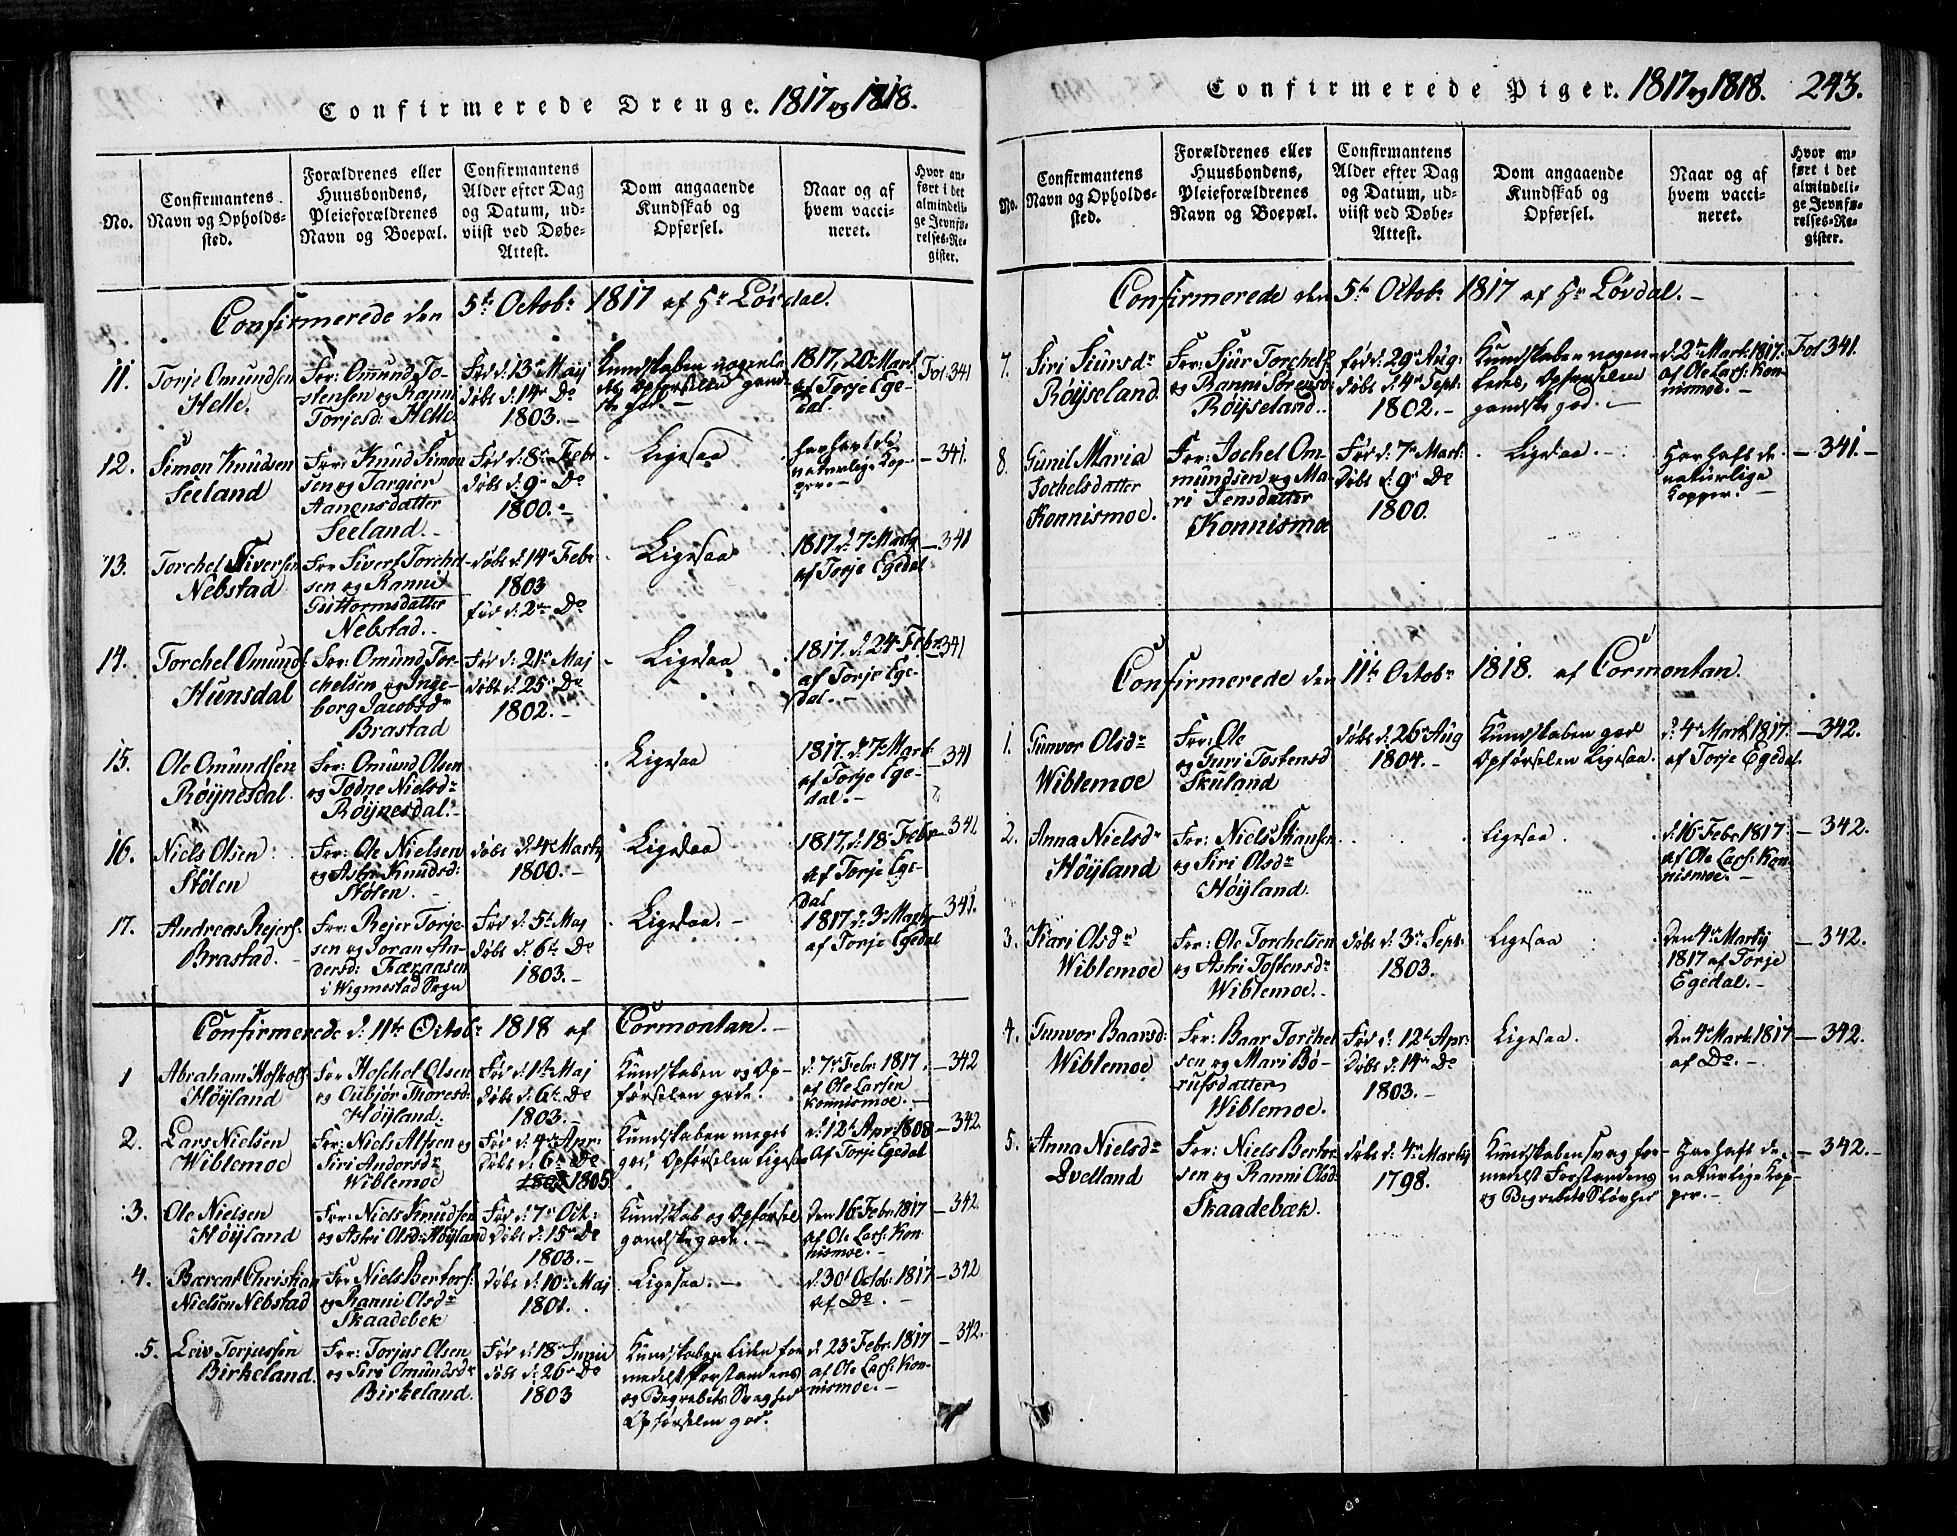 Confirmerede Drenge. 1817 og 1818.
No.
Confirmantens Navn og Opholds-sted.
Forældrenes eller Huusbondens, Pleieforældrenes Navn og Boepæl.
Confirmantens Alder efter Dag og Datum, ud-viist ved Døbe-Attest.
Dom angaaende Kundskab og Opførsel.
Naar og af hvem vacci-neret.
Hvor an-ført i det almindeli-ge Jevnfø-relses-Re-gister.
Confirmerede den 5te Octobr 1817 af Hr Løvdal.
11.
Torje Omundsen
Helle.
For: Omund To-
stensen og Ranni
Torjesd: Helle
Fød d: 13de Maj
døbt d: 14de Do
1803.-
Kundskaben nogenle-
des, Opførselen gand-
ske god.-
1817, 20de Mart
af Torje Ege-
dal.
Fol: 341
12.
Simon Knudsen
Seeland
For: Knud Simon
sen og Targier
Aanensdatter
Seeland.-
Fød d: 8de Febr
døbt d: 9de Do
1800.-
Ligesaa
havt de
naturlige Kop-
per.-
-341.
13.
Torchel Siversen
Nebstad
For Sivert Torchel-
sen og Ranni
Guttormsdatter
Nebstad.-
døbt d: 14de Febr
1803
fød d: 2den Do
Ligesaa
1817 d: 7de Marty
af Torje Egedal
-341
14.
Torchel Omunds:
Hunsdal
For: Omund Tor-
chelsen og Inge-
borg Jacobsdr
Brastad
Fød d: 21de Maj
døbt d: 25de Do
1802.-
Ligesaa
1817. d. 24de Febr
af Torje Ege-
dal.-
-341
15.
Ole Omundsen
Røijnesdal.
For: Omund Olsen
og Todne Nielsdr
Røijnesdal.-
Ligesaa
1817. d. 7de Mart:
af Torje Ege-
dal.-
-341
16.
Niels Olsen
Stølen
For: Ole Nielsen
og Astri Knudsd:
Stølen.
døbt d. 4de Marty
1800.-
Ligesaa
1817, d. 18de Febr
af Torje Ege-
dal
-341
17.
Andreas Rejers:
Brastad.-
For: Rejer Torje-
sen og Joran An-
dersd: Færaasen
i Wigmestad Sogn
Fød d: 5te Maj
døbt d: 6te Do
1803.-
Ligesaa.-
1817 d. 3de Marty
af Torje Egedal
-341.
Confirmerede d: 11te Octobr 1818 af Cormontan.-
1
Abraham
Høijland
For Hoschel Olsen
og Thoresd:
Høijland.
Fød d: 1ste Maj
døbt d: 6te Do
1803.-
Kundskaben og Op-
førselen gode.
d. 7de Febr 1817.
af Ole Larsen
Konnismoe.-
-342
2.
Lars Nielsen
Wiblemoe
For: Niels Alfsen og
Siri Andorsdr
Wiblemoe
Fød d: 4de Apr:
døbt d. 6te Do
1805
Kundskaben meget
god, Opførselen Ligesaa
d. 12te Apr 1808
af Torje Egedal
-342.
3.
Ole Nielsen
Høijland
For: Niels Knudsen
og Astri Olsd: Høijland
Fød d: 7de Oct:
døbt d: 15de Do
1803.-
Kundskab og Opførsel
gandske gode.-
Den 16de Febr 1817
af Ole Lars: Kon-
nismoe.-
-342.
4.
Bærent Christian
Nielsen Nebstad
For Niels Bertors:
og Ranni Olsdr
Skaadebek
døbt d. 10de Maj
1801.
Ligesaa.-
d. 30te Octob: 1817
af Do.-
-342
5.
Leiv Torjussen
Birkeland.
For: Torjus Olsen
og Siri Omundsdr
Birkeland.
Fød d: 18de Junii
døbt d: 26de Do
1803
Kundskaben Liden for-
medelst Forstandens
og Begrebets Svaghed
Opførselen god.
d. 23de Febr 1817
af Ole Lars: Kon-
nismoe.-
-342.
Confirmerede Piger. 1817 og 1818. 243.
No.
Confirmantens Navn og Opholds-sted.
Forældrenes eller Huusbondens, Pleieforældrenes Navn og Boepæl.
Confirmantens Alder efter Dag og Datum, ud-viist ved Døbe-Attest.
Dom angaaende Kundskab og Opførsel.
Naar og af hvem vacci-neret.
Hvor an-ført i det almindeli-ge Jevnfø-relses-Re-gister.
Confirmerede den 5te Octobr 1817 af Hr Løvdal.-
7.
Siri Siursdr
Røijseland.
For: Sjur Torchels:
og Ranni Sørensd
Røijseland.
fød d: 29de Aug:
døbt d: 4de Sept:
1802.-
Kundskaben nogen-
ledes, Opførselen
gandske god.-
d. 2den Mart: 1817.
af Ole Lars: Kon-
nismoe.-
Fol 341.
8.
Gunil Maria
Jochelsdatter
Konnismoe.
For: Jochel Om-
mundsen og Ma-
ri Jensdatter
Konnismoe
Fød d: 7de Mart:
døbt d: 9de Do
1800.
Ligesaa.-
Har haft de
naturlige
Kopper.-
-341.-
Confirmerede den 11te Octobr 1818. af Cormontan.
1.
Gunvor Olsdr
Wiblemoe
For: Ole
og Guri Tostensd
Skuland
døbt d: 26de Aug
1804.-
Kundskaben god
Opførselen Ligesaa.
d. 4de Mart 1817.
af Torje Egedal.
-342.
2.
Anna Nielsdr
Høijland
For: Niels
og Siri Olsdr
Høijland.
Ligesaa
d. 16 Febr 1817.
af Ole Lars: Kon-
nismoe.-
-342.
3.
Kari Olsdr
Wiblemoe
For: Ole Torchelsen
og Astri Tostensdr
Wiblemoe.-
døbt d: 3de Sept:
1803.
Ligesaa
Den 4de Marty
1817 af Torje
Egedal.-
-342.
4.
Gunvor Baarsd:
Wiblemoe
For: Baar Torchel
sen og Mari Bø-
rufsdatter
Wiblemoe.
Fød d: 12te Apr:
døbt d: 14de Do
1803.-
Ligesaa.
Den 4de Mart: 1817
af Do.-
-342.
5.
Anna Nielsdr
Qvelland
For: Niels Bertor-
sen og Ranni Olsd:
Skaadebæk.
døbt d: 4de Marty
1798.-
Kundskaben svag for-
medelst Forstandens
og Begrebets Sløvhed
Har haft de
naturlige Kop-
per.-
-342.-